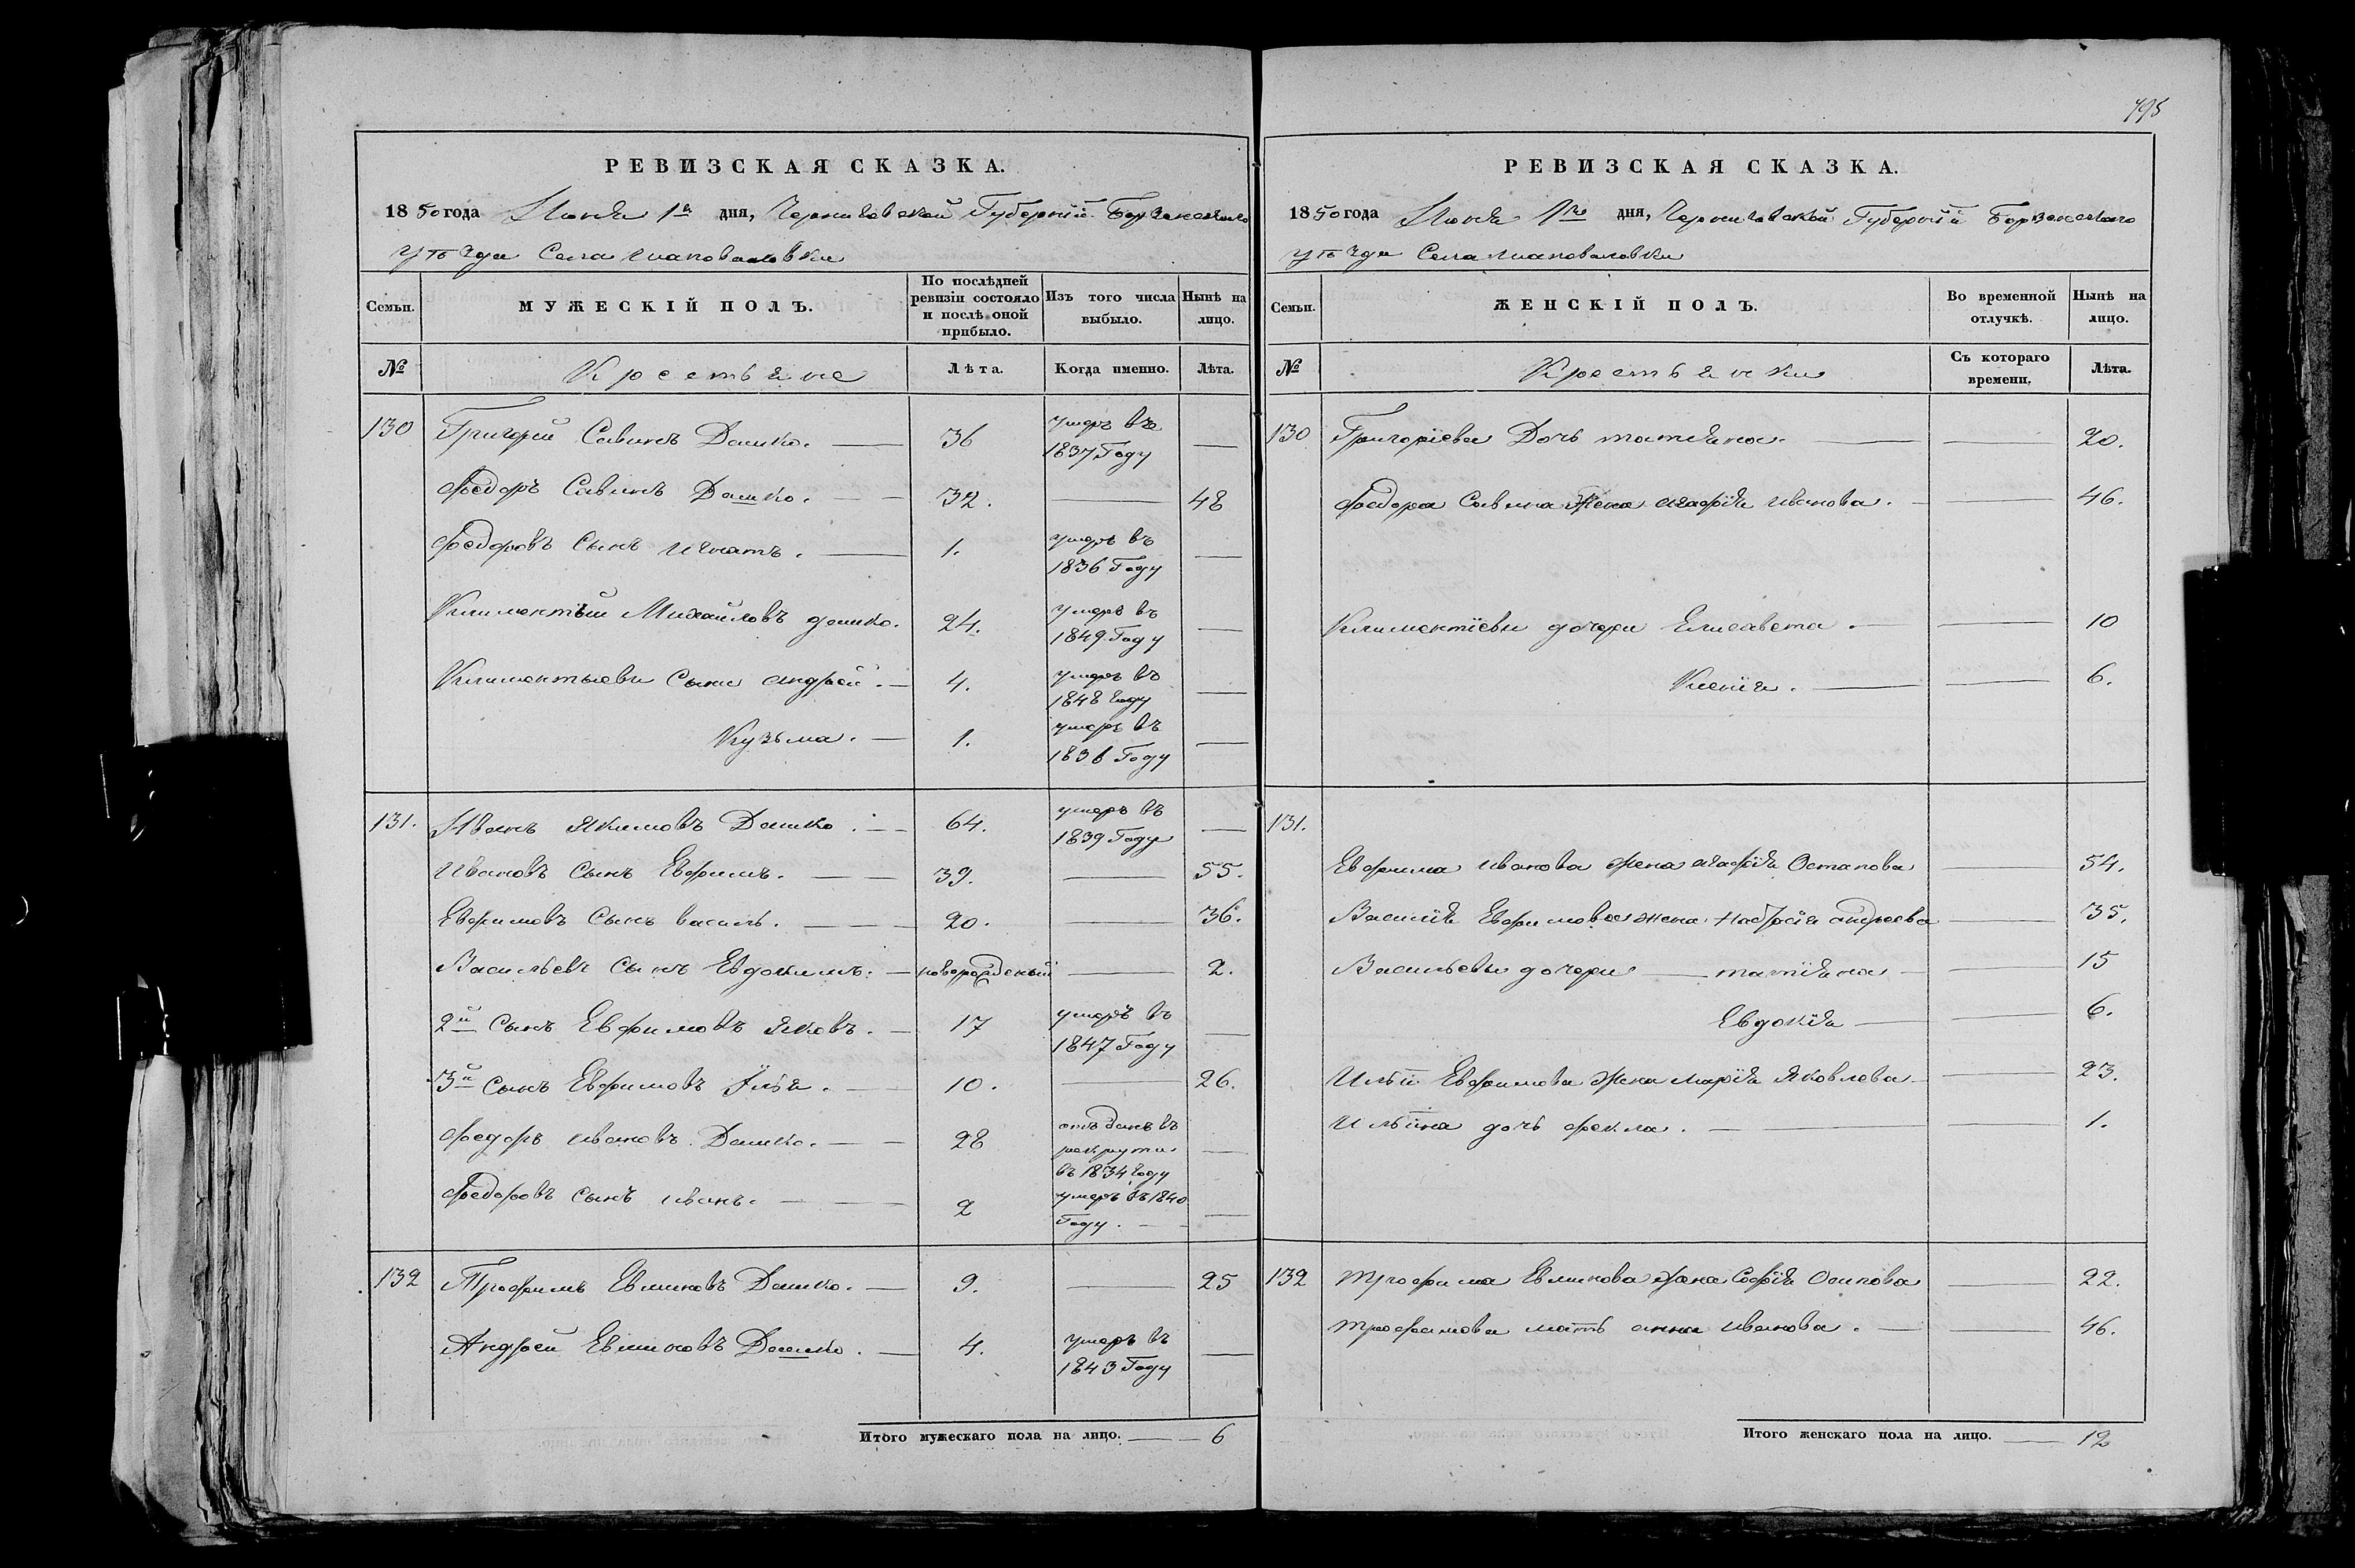 РЕВИЗСКАЯ СКАЗКА.
1850 года Июня 1го дня, Черниговской Губерніи Борзенскаго
уѣзда Села Шаповаловки
Семьи.
МУЖЕСКІЙ ПОЛЪ.
По послѣдней ревизіи состояло и послѣ оной прибыло.
Изъ того числа выбыло.
Нынѣ на лицо.
№
Крестьяне
Лѣта.
Когда именно.
Лѣта.
130 Григорій Савинъ Дашко. — 36 умеръ въ 1837 Году —
Федоръ Савинъ Дашко. — 32. — 48
Федоровъ Сынъ Игнатъ. — 1. умеръ въ 1836 Году —
Климентій Михайловъ Дашко. 24. умеръ въ 1849. Году —
Климентьевы Сыны Андрей. — 4. умеръ въ 1848 Году —
Кузьма. — 1. умеръ въ 1836 Году —
131. Иванъ Якимовъ Дашко. — 64. умеръ въ 1839 Году —
Ивановъ Сынъ Ефримъ. — 39. — 55.
Евфимовъ Сынъ Василь. — 20. — 36.
Васильевъ Сынъ Евдокимъ. — новорожденый — 2.
2й Сынъ Евфимовъ Яковъ. — 17 умеръ въ 1847 Году —
3й Сынъ Евфимовъ Илья. — 10. — 26.
Федоръ Ивановъ Дашко. — 28 отъданъ въ рекруты въ 1834 Году —
Федоровъ Сынъ Иванъ. — 2 умеръ въ 1840 Году. —
132 Трофимъ Евминовъ Дашко. — 9. — 25
Андрей Евминовъ Дашко. — 4. умеръ въ 1843 Году —
Итого мужескаго пола на лицо. — 6
795
РЕВИЗСКАЯ СКАЗКА.
1850 года Июня 1го дня, Черниговской Губерніи Борзенскаго
уѣзда Села Шаповаловки
Семьи.
ЖЕНСКІЙ ПОЛЪ.
Во временной отлучкѣ.
Нынѣ на лицо.
№
Крестьянки
Съ котораго времени.
Лѣта.
130 Григоріева Дочь Татіяна. — 20.
Федора Савина Жена Агафія Иванова. — 46.
Климентіевы дочери Елисавета. — 10
Ксенія. — 6.
131.
Евфима Иванова жена Агафія Остапова — 54.
Василія Евфимова жена Настасія Андреева — 35.
Васильевы дочери — Татіяна — 15
Евдокія — 6.
Ильи Евфимова жена Марія Яковлева — 23.
Ильина дочь Фекла. — 1.
132 Трофима Евминова жена Софія Осипова — 22.
Трофимова мать Анна Иванова. — 46.
Итого женскаго пола на лицо. — 12